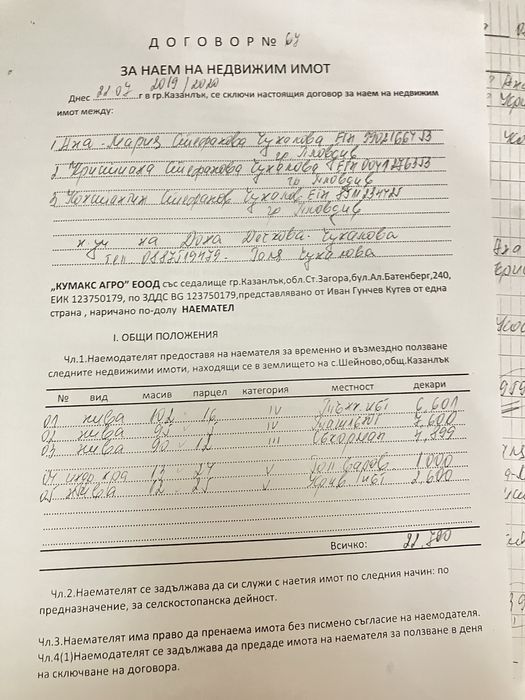 ДОГОВОР № 64
ЗА НАЕМ НА НЕДВИЖИМ ИМОТ
Днес 22.07 2019/2020 г в гр.Казанлък, се сключи настоящия договор за наем на недвижим
имот между:
1. Ана-Мария Стефанова Чукалова ЕГН
гр Пловдив
2. Стефанова Чукалова ЕГН
гр Пловдив
3. Константин Стефанов Чукалов ЕГН
гр Пловдив
на Дона Дочкова Чукалова
тел Чукалова
„КУМАКС АГРО” ЕООД със седалище гр.Казанлък,обл.Ст.Загора,бул.Ал.Батенберг,240,
ЕИК 123750179, по ЗДДС BG 123750179,представлявано от Иван Гунчев Кутев от една
страна , наричано по-долу НАЕМАТЕЛ
I. ОБЩИ ПОЛОЖЕНИЯ
Чл.1.Наемодателят предоставя на наемателя за временно и възмездно ползване
следните недвижими имоти, находящи се в землището на с.Шейново,общ.Казанлък
№ вид масив парцел категория местност декари
01 нива 102 16 IV 6.601
02 нива IV
03 нива 90 12 III
04 13 27 V 1.000
05 нива 12 25 V 2.600
Всичко:
Чл.2.Наемателят се задължава да си служи с наетия имот по следния начин: по
предназначение, за селскостопанска дейност.
Чл.3.Наемателят има право да пренаема имота без писмено съгласие на наемодателя.
Чл.4(1)Наемодателят се задължава да предаде имота на наемателя за ползване в деня
на сключване на договора.